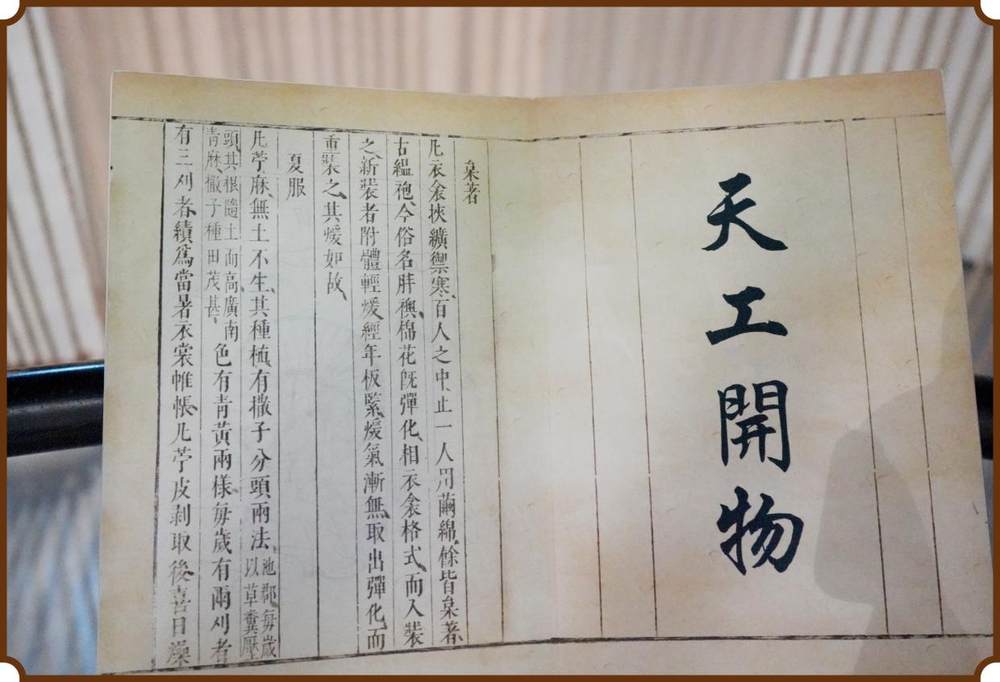 天工開物
枲著
凡衣衾挾纊禦寒、百人之中止一人用繭綿、餘皆枲著、
古縕袍、今俗名胖襖、棉花既彈化、相衣衾格式而入裝
之、新裝者附體輕煖、經年板緊、煖氣漸無、取出彈化而
重裝之、其煖如故、
夏服
凡苧麻、無土不生、其種植有撒子分頭兩法、池郡每歲以草糞壓
頭、其根隨土而高、廣南青麻、撒子種田茂甚、色有青黃兩樣、每歲有兩刈者
有三刈者、績爲當暑衣裳帷帳、凡苧皮剥取後、喜日燥